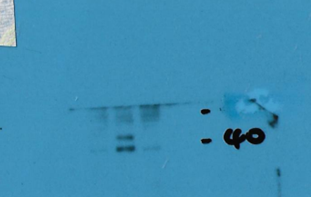 - 40